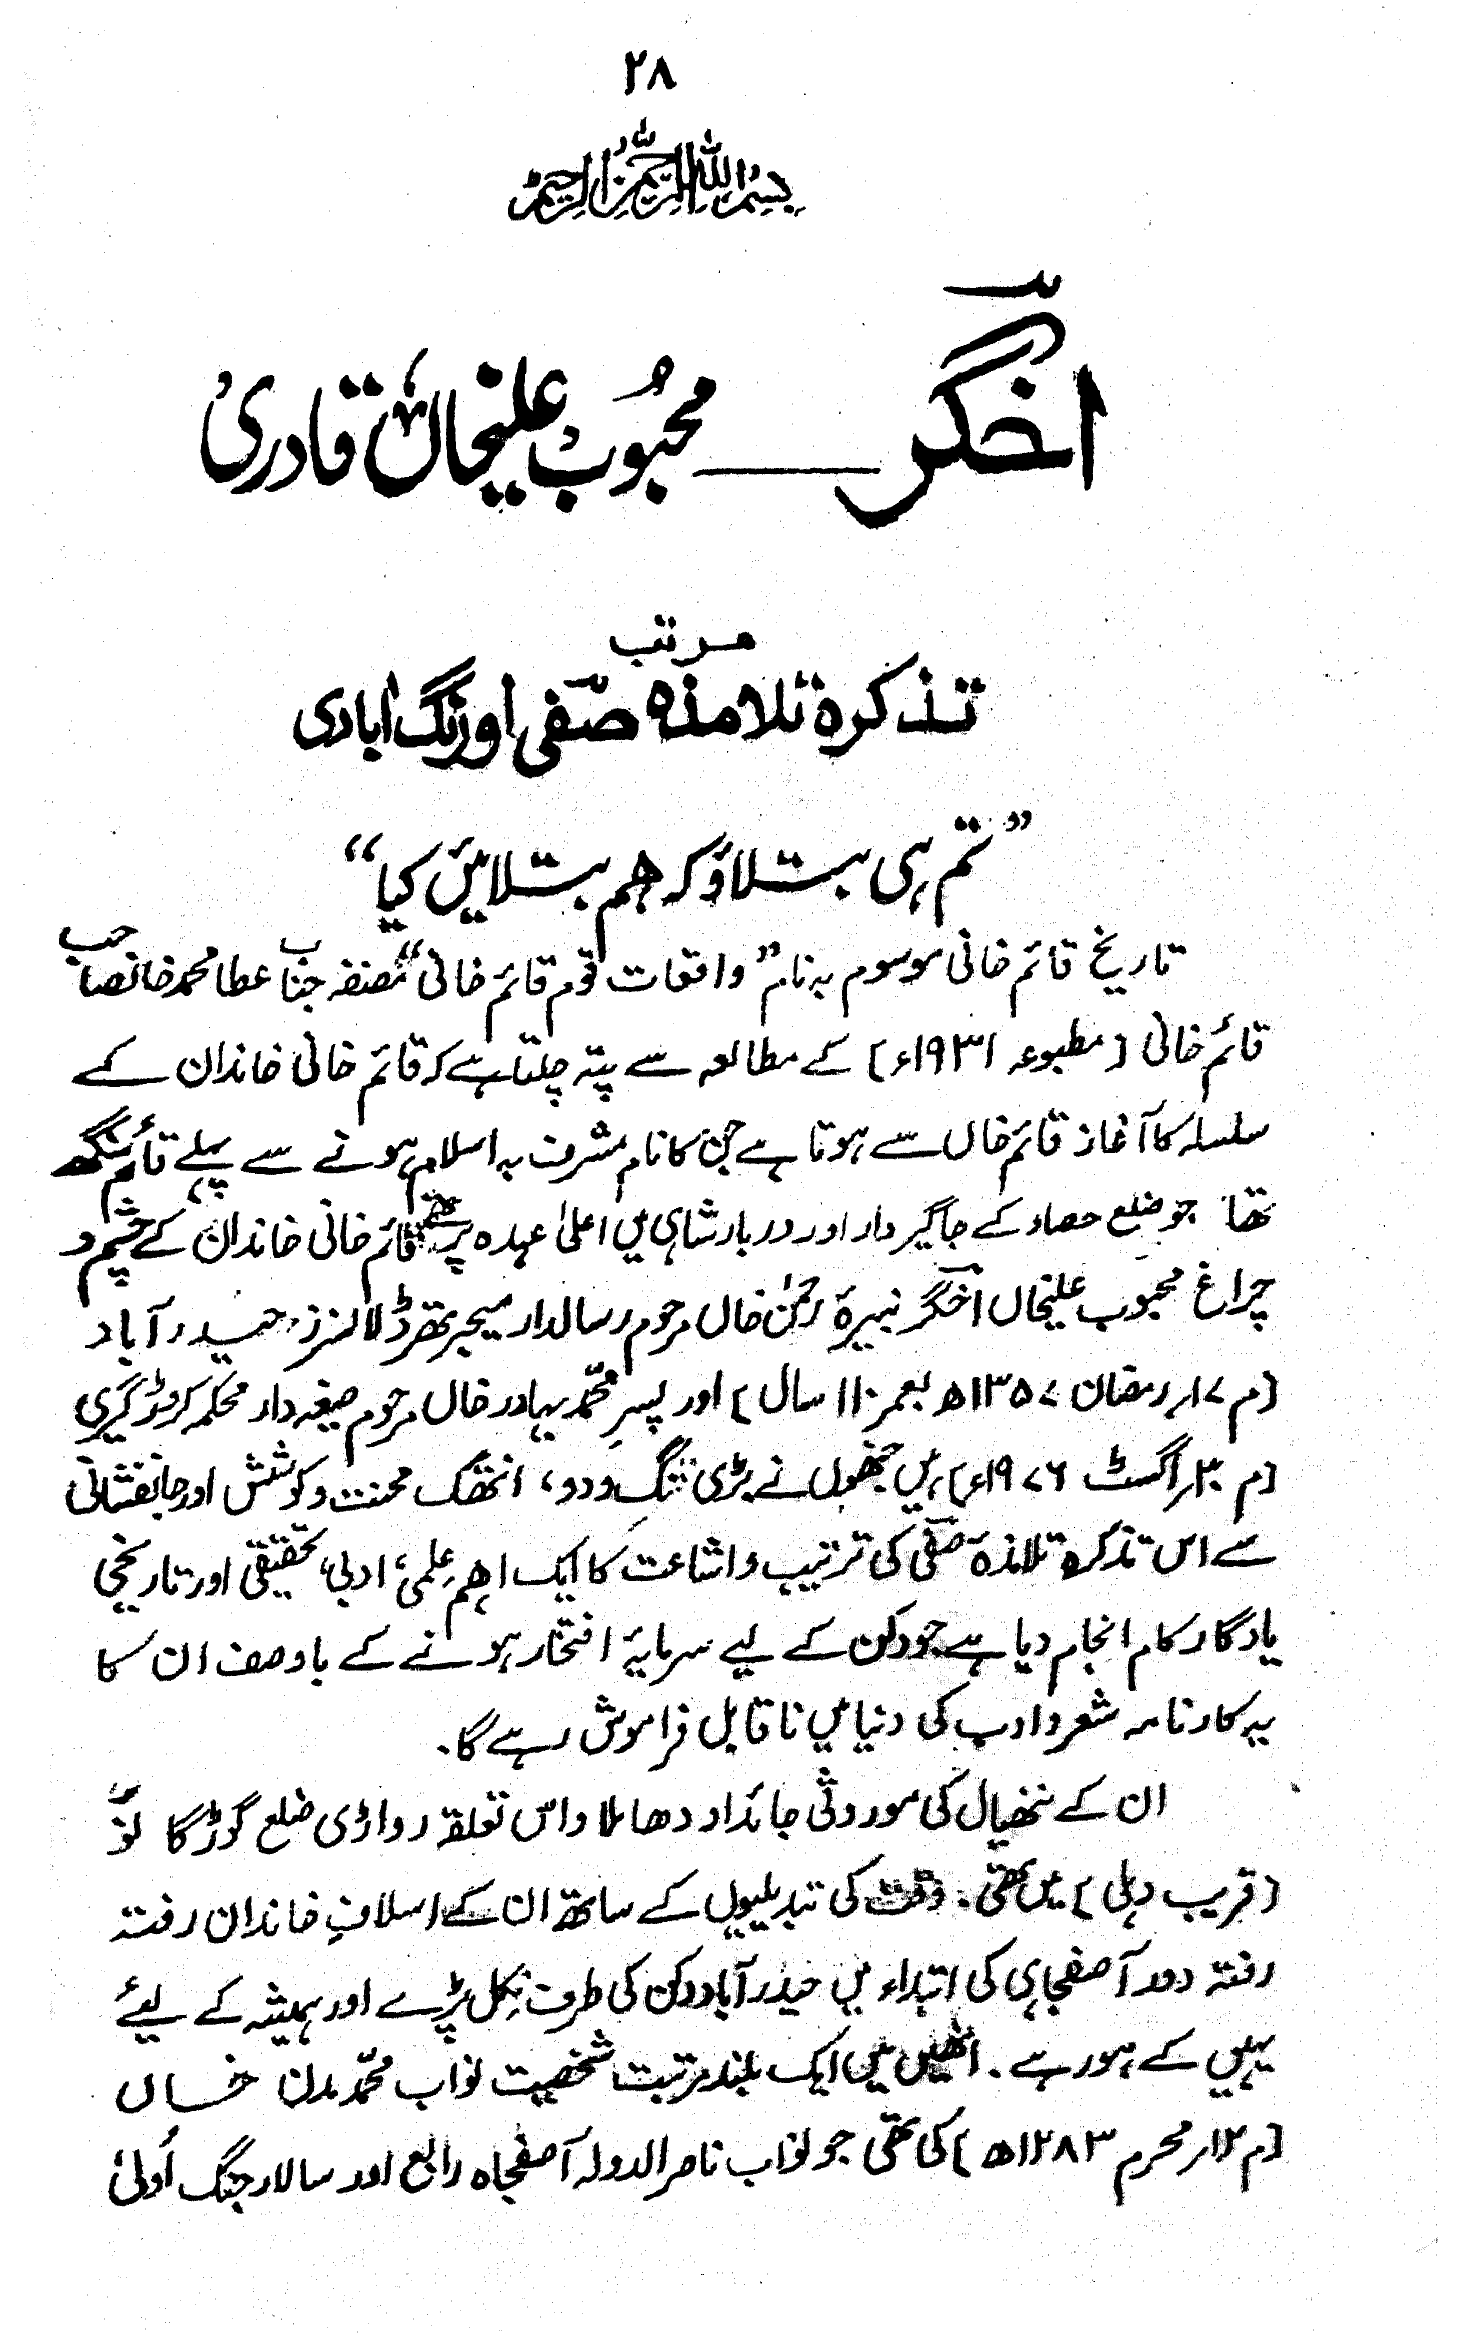 ۲۸
بسم اللہ الرحمٰن الرحیم
اخگر ـــــ محبوب علیخاں قادری
مرتب
تذکرہ تلامذہ صفی اورنگ آبادی
”تم ہی بتلاؤ کہ ہم بتلائیں کیا“
تاریخ قائم خانی موسوم بہ نام ”واقعات قوم قائم خانی“ مصنفہ جناب عطا محمد خانصاحب
قائم خانی [مطبوعہ ۱۹۳۱ء] کے مطالعہ سے پتہ چلتا ہے کہ قائم خانی خاندان کے
سلسلہ کا آغاز قائم خاں سے ہوتا ہے جن کا نام مشرف بہ اسلام ہونے سے پہلے قائم سنگھ
تھا جو ضلع حصار کے جاگیردار اور دربار شاہی میں اعلیٰ عہدہ پر تھے قائم خانی خاندان کے چشم و
چراغ محبوب علیخاں اخگر نبیرۂ رحمٰن خاں مرحوم رسالدار میجر تھرڈ لانسرز حیدرآباد
[م ۱۷ر رمضان ۱۳۵۷ھ بعمر ۱۱۰ سال] اور پسرِ محمد بہادر خاں مرحوم صیغہ دار محکمہ کروڑگیری
[م ۳۰ر اگسٹ ۱۹۷۶ء] ہیں جنھوں نے بڑی تگ و دو، انتھک محنت و کوشش اور جانفشانی
سے اس تذکرہ تلامذہ صفی کی ترتیب و اشاعت کا ایک اہم علمی، ادبی، تحقیقی اور تاریخی
یادگار کام انجام دیا ہے جو دکن کے لیے سرمایۂ افتخار ہونے کے باوصف ان کا
یہ کارنامہ شعر و ادب کی دنیا میں ناقابل فراموش رہے گا۔
ان کے ننھیال کی موروثی جائداد دھاملاواس تعلقہ رواڑی ضلع گوڑگانوں
[قریب دہلی] میں تھی۔ وقت کی تبدیلیوں کے ساتھ ان کے اسلافِ خاندان رفتہ
رفتہ دور آصفجاہی کی ابتداء میں حیدرآباد دکن کی طرف نکل پڑے اور ہمیشہ کے لیئے
یہیں کے ہو رہے۔ انھیں میں ایک بلند مرتبت شخصیت نواب محمد بدن خاں
[م ۱۲ر محرم ۱۲۸۳ھ] کی تھی جو نواب ناصر الدولہ آصفجاہ رابع اور سالار جنگ اُولیٰ